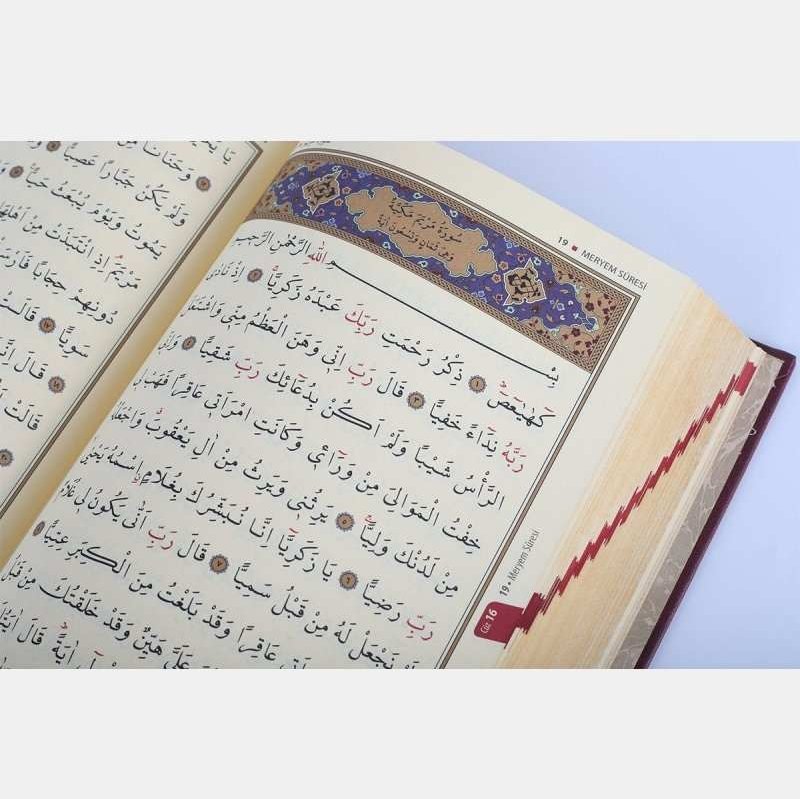 19 ▪ MERYEM SÛRESİ
سُورَةُ مَرْيَمَ مَكِّيَّةٌ
وَهِيَ ثَمَانٍ وَتِسْعُونَ اٰيَةً
بِسْمِ اللّٰهِ الرَّحْمٰنِ الرَّحِيمِ
كٓهٰيٰعٓصٓ ۚ ﴿١﴾ ذِكْرُ رَحْمَتِ رَبِّكَ عَبْدَهُ زَكَرِيَّا ۚ ﴿٢﴾ اِذْ نَادٰى
رَبَّهُ نِدَٓاءً خَفِيًّا ﴿٣﴾ قَالَ رَبِّ اِنّ۪ي وَهَنَ الْعَظْمُ مِنّ۪ي وَاشْتَعَلَ
الرَّأْسُ شَيْبًا وَلَمْ اَكُنْ بِدُعَٓائِكَ رَبِّ شَقِيًّا ﴿٤﴾ وَاِنّ۪ي
خِفْتُ الْمَوَالِيَ مِنْ وَرَٓاء۪ي وَكَانَتِ امْرَاَت۪ي عَاقِرًا فَهَبْ ل۪ي
مِنْ لَدُنْكَ وَلِيًّا ۙ ﴿٥﴾ يَرِثُن۪ي وَيَرِثُ مِنْ اٰلِ يَعْقُوبَ وَاجْعَلْهُ
رَبِّ رَضِيًّا ﴿٦﴾ يَا زَكَرِيَّٓا اِنَّا نُبَشِّرُكَ بِغُلَامٍ اسْمُهُ يَحْيٰى
لَمْ نَجْعَلْ لَهُ مِنْ قَبْلُ سَمِيًّا ﴿٧﴾ قَالَ رَبِّ اَنّٰى يَكُونُ ل۪ي غُلَامٌ
عَاقِرًا وَقَدْ بَلَغْتُ مِنَ الْكِبَرِ عِتِيًّا ﴿٨﴾
عَلَيَّ هَيِّنٌ وَقَدْ خَلَقْتُكَ مِنْ قَبْلُ
اٰيَةً ۜ قَالَ اٰيَتُكَ
Cüz 16
19 • Meryem Sûresi
وَحَنَانًا مِنْ
وَلَمْ يَكُنْ جَبَّارًا عَصِيًّا
يَمُوتُ وَيَوْمَ يُبْعَثُ حَيًّا
مَرْيَمَ اِذِ انْتَبَذَتْ مِنْ اَهْلِهَا
دُونِهِمْ حِجَابًا فَاَرْسَلْنَا
سَوِيًّا ﴿١٧﴾ قَالَتْ
قَالَ اِنَّمَا
قَالَتْ